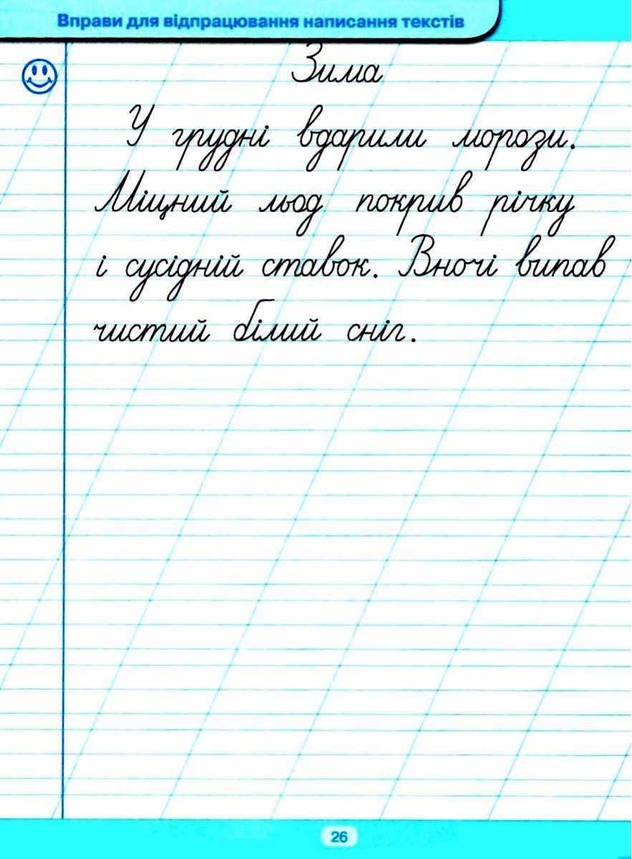 Вправи для відпрацювання написання текстів
Зима
У грудні вдарили морози.
Міцний льод покрив річку
і сусідній ставок. Вночі випав
чистий білий сніг.
26